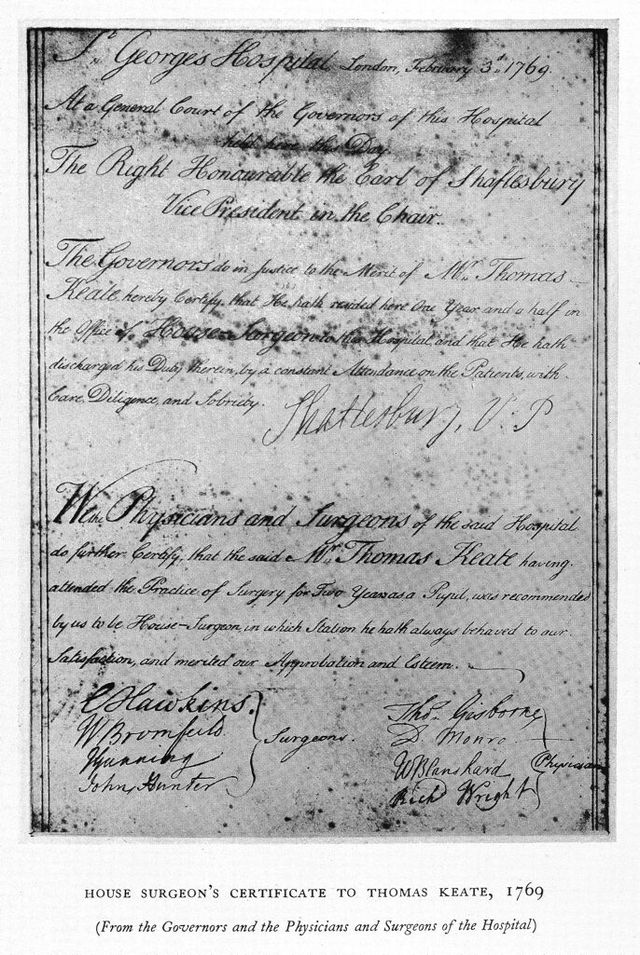 St. George's Hospital London, February 3d. 1769.
At a General Court of the Governors of this Hospital
held here this Day
The Right Honourable the Earl of Shaftesbury
Vice President in the Chair.
The Governors do in Justice to the Merit of Mr. Thomas
Keate hereby Certify that He hath resided here One Year and a half in
the Office of House-Surgeon to this Hospital and that He hath
discharged his Duty therein, by a constant Attendance on the Patients, with
Care, Diligence, and Sobriety.
Shaftesbury, V. P
We the Physicians and Surgeons of the said Hospital
do further Certify that the said Mr. Thomas Keate having
attended the Practice of Surgery for Two Years as a Pupil, was recommended
by us to be House-Surgeon, in which Station he hath always behaved to our
Satisfaction, and merited our Approbation and Esteem.
C Hawkins.
W Bromfeild
John Hunter
Surgeons.
Thos. Gisborne
D Monro
W Blanshard
Richd Wright
Physicians
HOUSE SURGEON'S CERTIFICATE TO THOMAS KEATE, 1769
(From the Governors and the Physicians and Surgeons of the Hospital)